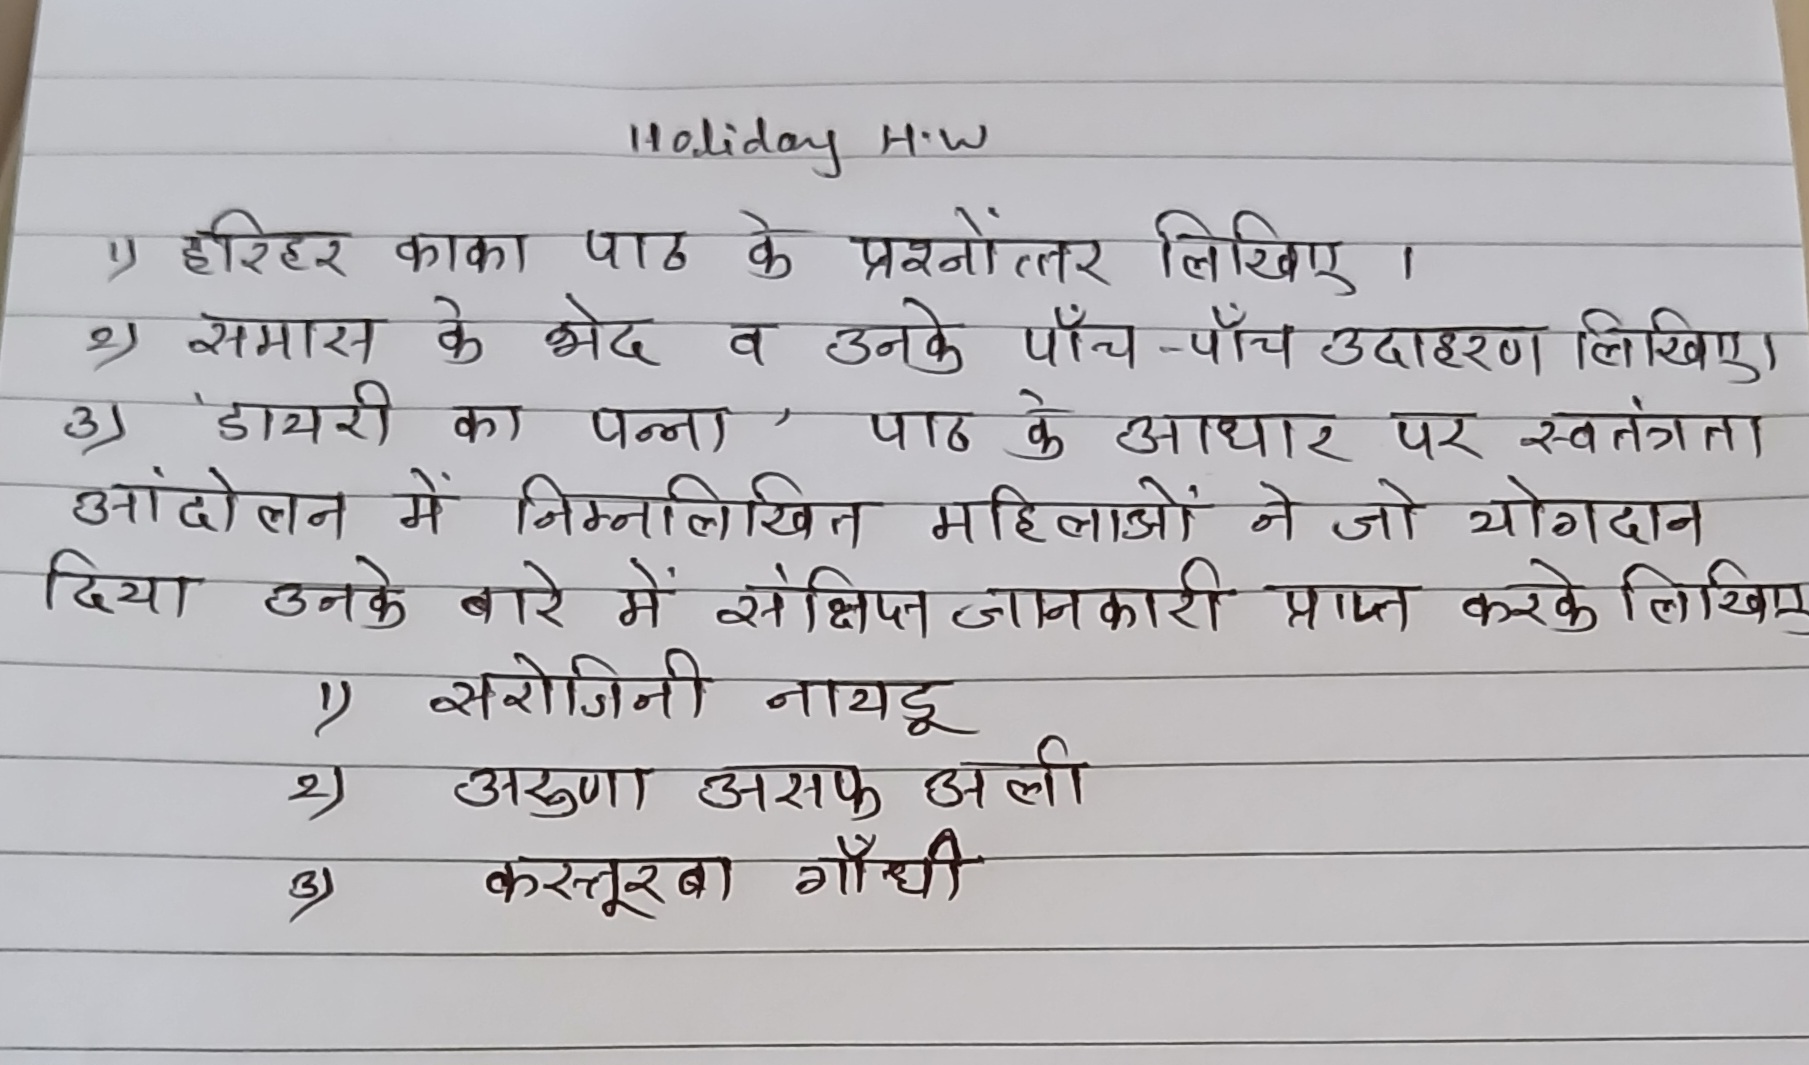 Holiday H.W
1) हरिहर काका पाठ के प्रश्नोंत्तर लिखिए ।
२) समास के भेद व उनके पाँच-पाँच उदाहरण लिखिए।
3) 'डायरी का पन्ना' पाठ के आधार पर स्वतंत्रता
आंदोलन में निम्नलिखित महिलाओं ने जो योगदान
दिया उनके बारे में संक्षिप्त जानकारी प्राप्त करके लिखिए
1) सरोजिनी नायडू
२) अरुणा असफ अली
3) कस्तूरबा गाँन्धी